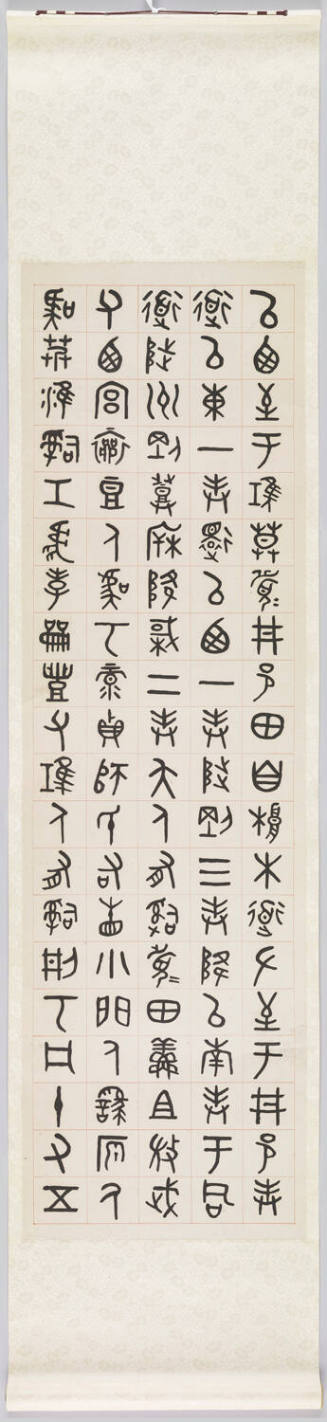 以西至于堆莫眉井邑田自根木道左至于井邑封
道以東一封還以西一封陟剛三封降以南封于同
道陟州剛登𣏟降棫二封夨人有𤔲眉田鮮且微武
父西宮襄豆人虞丂彔貞師氏右眚小門人䌛原人
虞芳淮𤔲工虎孝龠豐父堆人有𤔲荊丂凡十又五